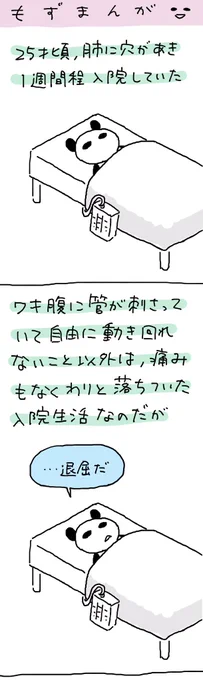 もずまんが
25才頃,肺に穴があき
1週間程入院していた
ワキ腹に管が刺さって
いて自由に動き回れ
ないこと以外は,痛み
もなくわりと落ちついた
入院生活なのだが
…退屈だ